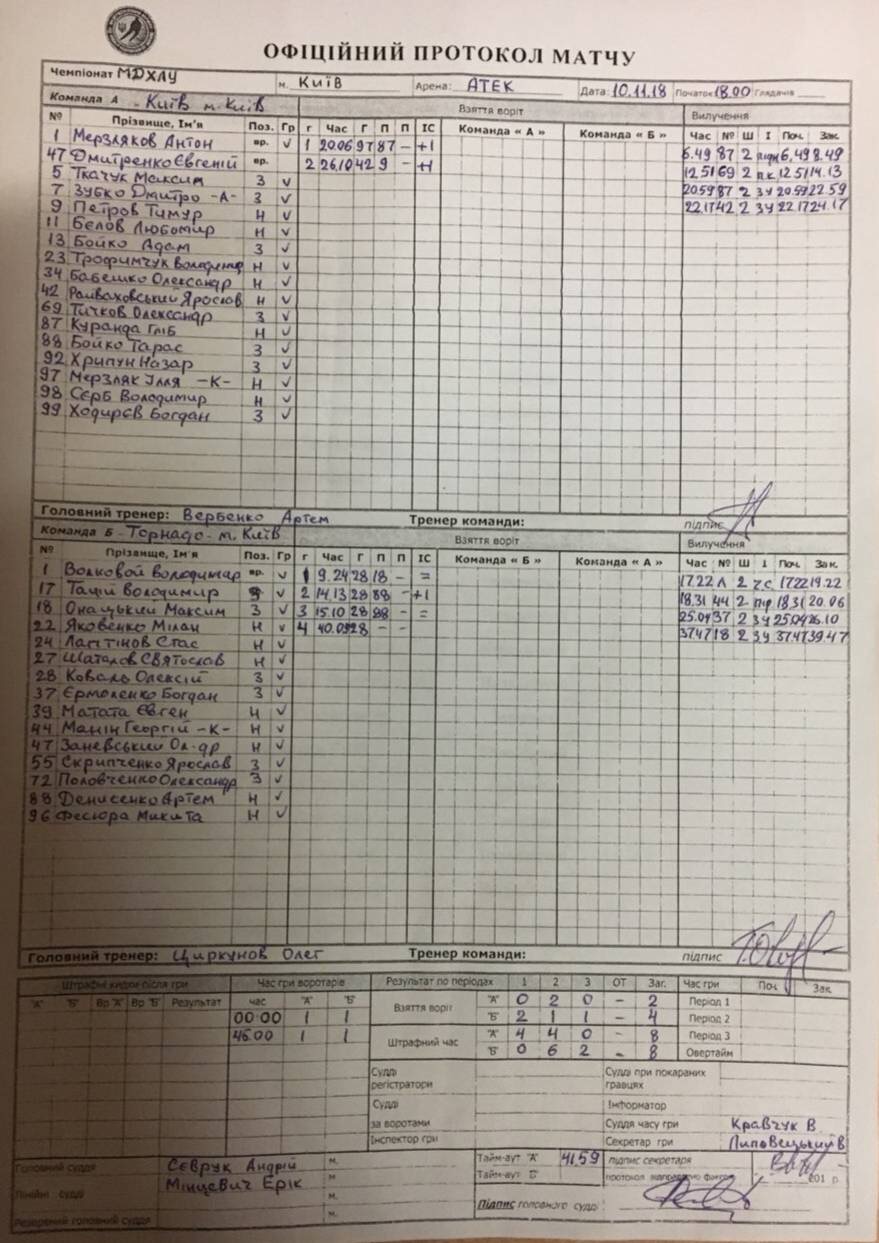 ОФІЦІЙНИЙ ПРОТОКОЛ МАТЧУ
Чемпіонат МДХЛУ м. Київ Арена: АТЕК Дата: 10.11.18 Початок 18.00 Глядачів
Команда А - Київ м. Київ Взяття воріт Вилучення
№ Прізвище, Ім'я Поз. Гр г Час Г П П ІС Команда « А » Команда « Б » Час № Ш І Поч. Зак.
1 Мерзляков Антон вр. v 1 20.06 97 87 - +1 6.49 87 2 6.49 8.49
47 Дмитренко Євгеній вр. 2 26.10 42 9 - +1 12.51 69 2 12.51 14.13
5 Ткачук Максим З v 20.59 87 2 ЗУ 20.59 22.59
7 Зубко Дмитро -А- З v 22.17 42 2 ЗУ 22.17 24.17
9 Петров Тимур Н v
11 Бєлов Любомир Н v
13 Бойко Адам З v
23 Трофимчук Володимир Н v
34 Бабешко Олександр Н v
42 Ярослав Н v
69 Тичков Олександр З v
87 Куранда Гліб Н v
88 Бойко Тарас З v
92 Хрипун Назар З v
97 Мерзляк Ілля -К- Н v
98 Сєрб Володимир Н v
99 Ходирєв Богдан З v
Головний тренер: Вербенко Артем Тренер команди: підпис
Команда Б - Торнадо - м. Київ Взяття воріт Вилучення
№ Прізвище, Ім'я Поз. Гр г Час Г П П ІС Команда « Б » Команда « А » Час № Ш І Поч. Зак.
1 Волковой Володимир вр. v 1 9.24 28 18 - = 17.22 Л 2 ч.с 17.22 19.22
17 Тацій Володимир v 2 14.13 28 88 - +1 18.31 44 2 18.31 20.06
18 Онацький Максим З v 3 15.10 28 98 - = 25.04 37 2 ЗУ 25.04 26.10
22 Яковенко Мілан Н v 4 40.09 28 - - 37.47 18 2 ЗУ 37.47 39.47
24 Стас Н v
27 Шаталов Святослав Н v
28 Коваль Олексій З v
37 Єрмоленко Богдан З v
39 Матата Євген Н v
44 Манін Георгій -К- Н v
47 Заневський Ол-др Н v
55 Скрипченко Ярослав З v
72 Половченко Олександр З v
88 Денисенко Артем Н v
96 Фесюра Микита Н v
Головний тренер: Циркунов Олег Тренер команди: підпис
Штрафні кидки після гри Час гри воротарів Результат по періодах 1 2 3 ОТ Заг. Час гри Поч. Зак.
"А" "Б" Вр "А" Вр "Б" Результат час "А" "Б" Взяття воріт "А" 0 2 0 - 2 Період 1
00.00 1 1 "Б" 2 1 1 - 4 Період 2
45.00 1 1 Штрафний час "А" 4 4 0 - 8 Період 3
"Б" 0 6 2 - 8 Овертайм
Судді реєстратори Судді при покараних гравцях
Судді Інформатор
за воротами Суддя часу гри Кравчук В
Інспектор гри Секретар гри Липовецький В
Головний суддя Сєврук Андрій м. Тайм-аут "А" 41.59 підпис секретаря
Лінійні судді Мінцевич Ерік м. Тайм-аут "Б" протокол відправлено 201 р
м. Підпис головного судді
Резервний головний суддя м.